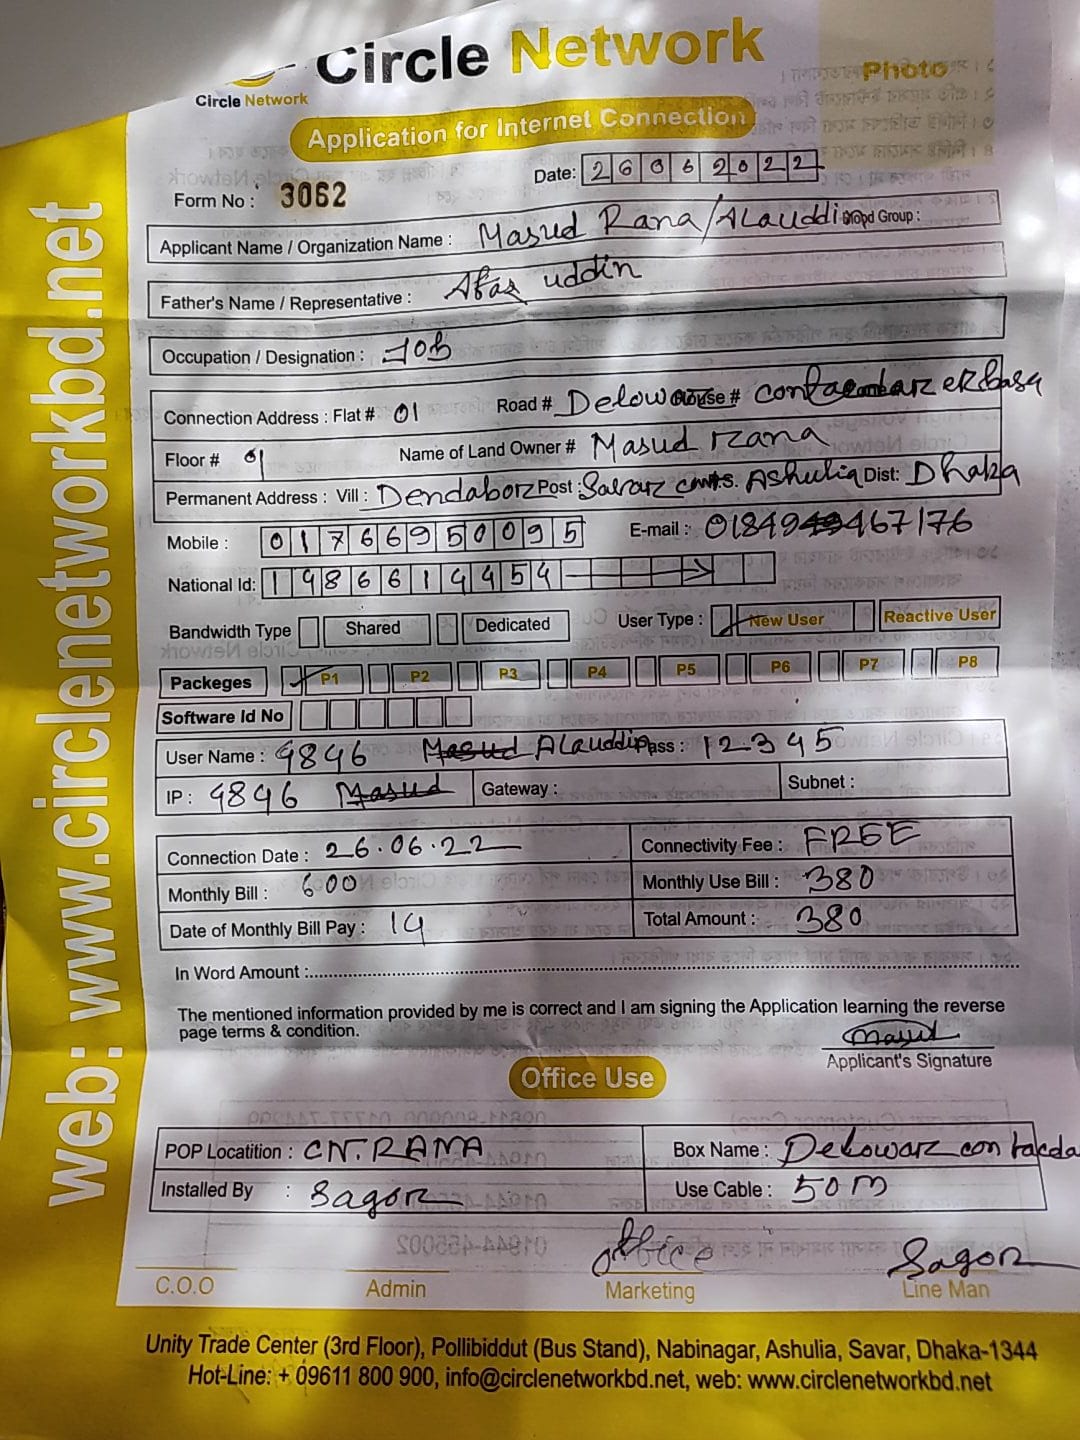 Circle Network
Circle Network
Photo
Application for Internet Connection
Date: 26062022
Form No : 3062
Applicant Name / Organization Name : Masud Rana/Alauddin Blood Group :
Father's Name / Representative : Afaz uddin
Occupation / Designation : JOB
Connection Address : Flat # 01 Road # Delowar House # contacdar er basa
Floor # 01 Name of Land Owner # Masud rana
Permanent Address : Vill : Dendabor Post : Savar P.S. Ashulia Dist: Dhaka
Mobile : 01766950095 E-mail : 01849467176
National Id: 1986614454
Bandwidth Type Shared Dedicated User Type : New User Reactive User
Packeges P1 P2 P3 P4 P5 P6 P7 P8
Software Id No
User Name : 9896 Masud Alauddin Pass : 12345
IP : 9896 Masud Gateway : Subnet :
Connection Date : 26.06.22 Connectivity Fee : FREE
Monthly Bill : 600 Monthly Use Bill : 380
Date of Monthly Bill Pay : 14 Total Amount : 380
In Word Amount :
The mentioned information provided by me is correct and I am signing the Application learning the reverse
page terms & condition.
Masud
Applicant's Signature
Office Use
POP Locatition : CN.RANA Box Name : Delowar contacda
Installed By : Sagor Use Cable : 50m
office Sagor
C.O.O Admin Marketing Line Man
Unity Trade Center (3rd Floor), Pollibiddut (Bus Stand), Nabinagar, Ashulia, Savar, Dhaka-1344
Hot-Line: + 09611 800 900, info@circlenetworkbd.net, web: www.circlenetworkbd.net
web: www.circlenetworkbd.net